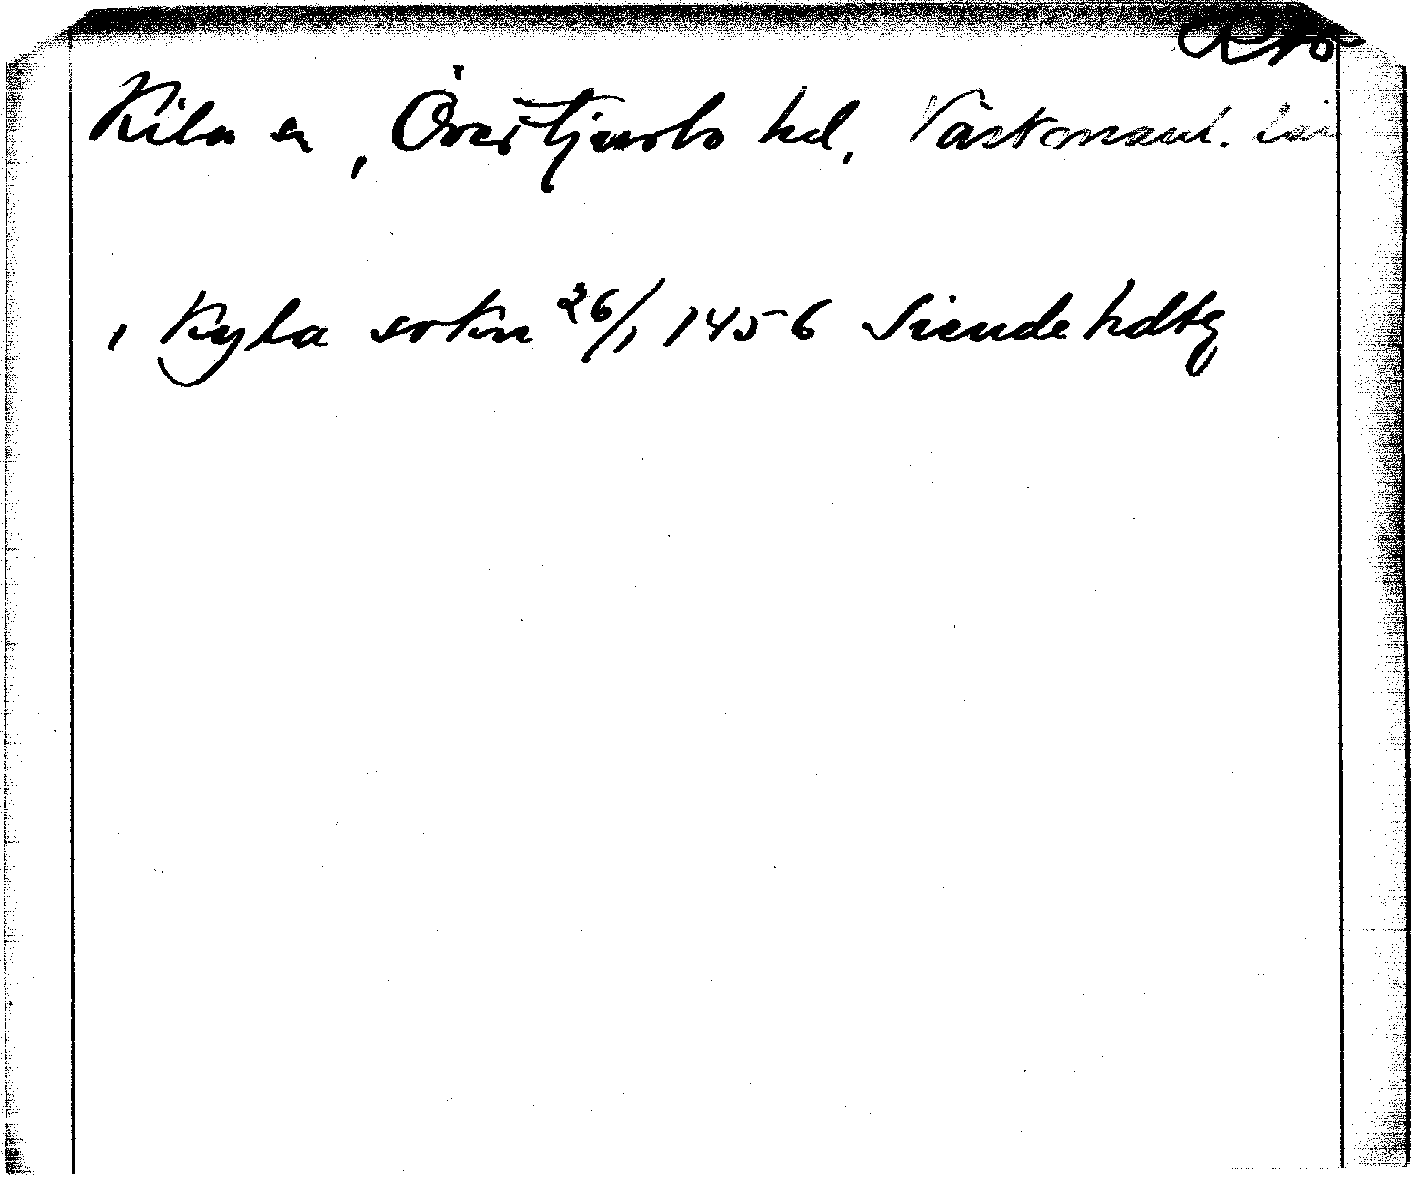 Kila sn, Övertjurbo hd, Västmanl. län
i Kyla sokn 26/1 1456 Siende hdtg